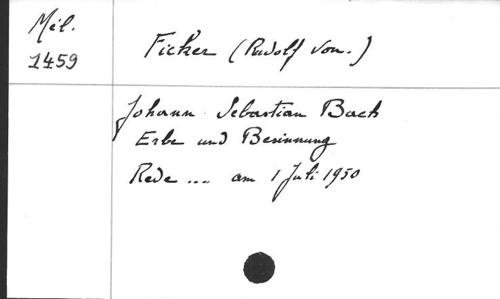 Mél.
1459
Ficker (Rudolf von.)
Johann Sebastian Bach
Erbe und Besinnung
Rede ... am 1 Juli 1950